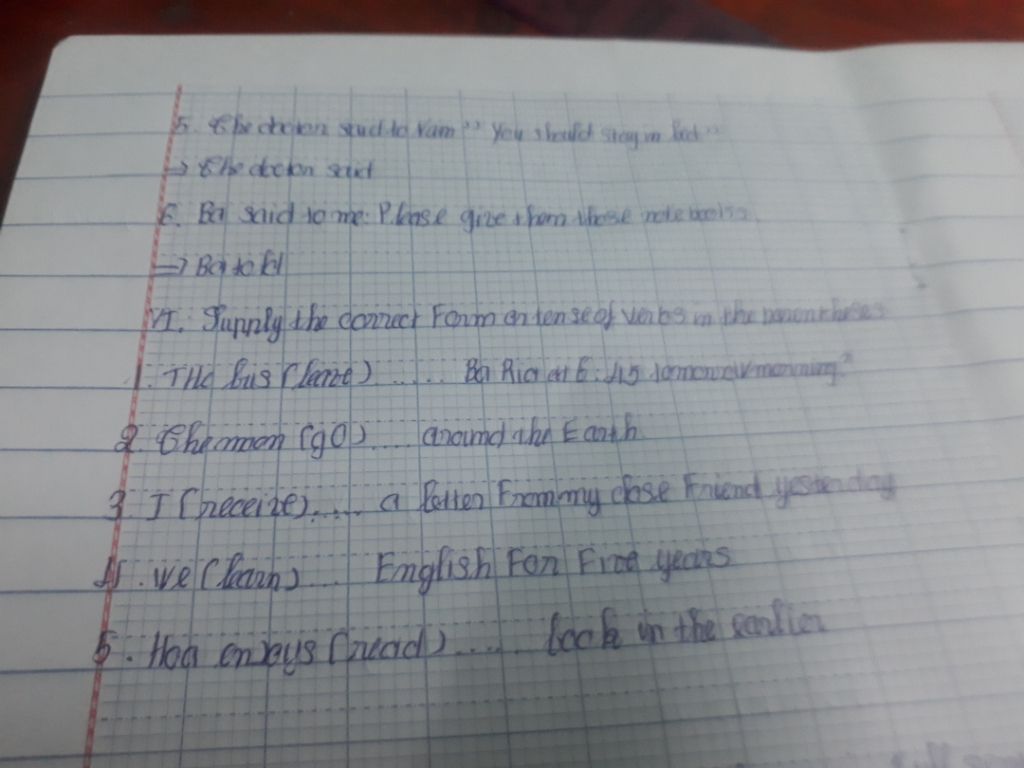 5. The docton said to Nam " You should stay in bed "
→ The docton said
6. Ba said to me: Please give them those notebooks
=> Ba told
VI. Supply the correct Form on tense of verbs in the parentheses
1. THe bus (leave) ..... Ba Ria at 6:45 tomorrow morning.
2. The moon (gO) .... around the Earth
3 I (receive)..... a letter From my close Friend yesterday
4. we (learn) .... English For Five years
5. Hoa enjoys (read) ..... book in the